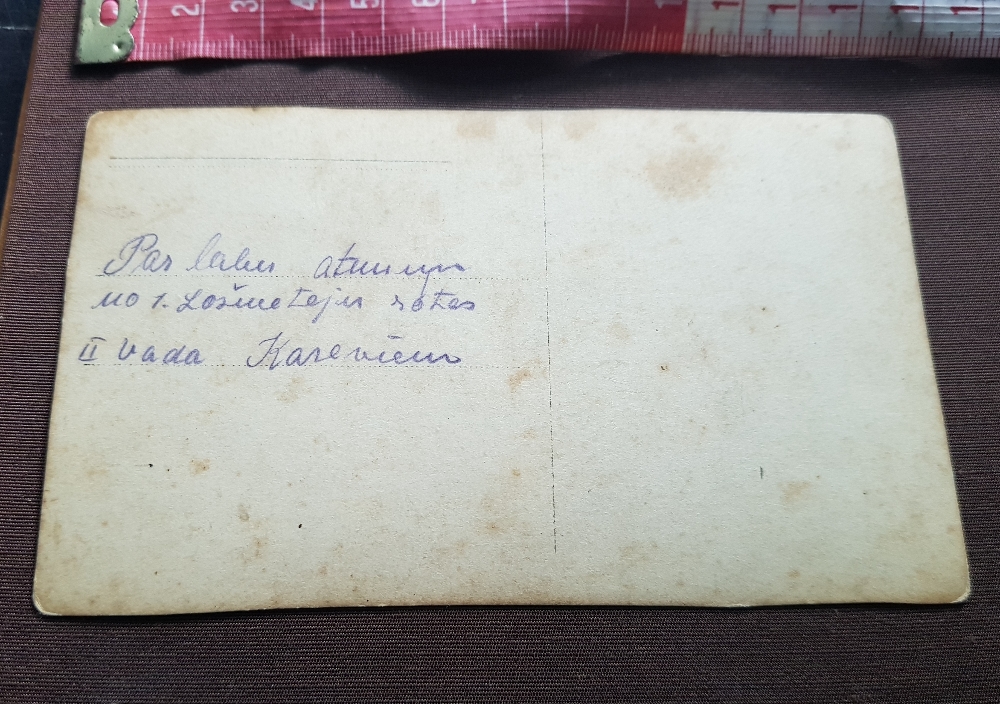 2 3 4 5 6
Par labu atmiņu
no 1. Ložmetēju rotas
II vada Kareviem